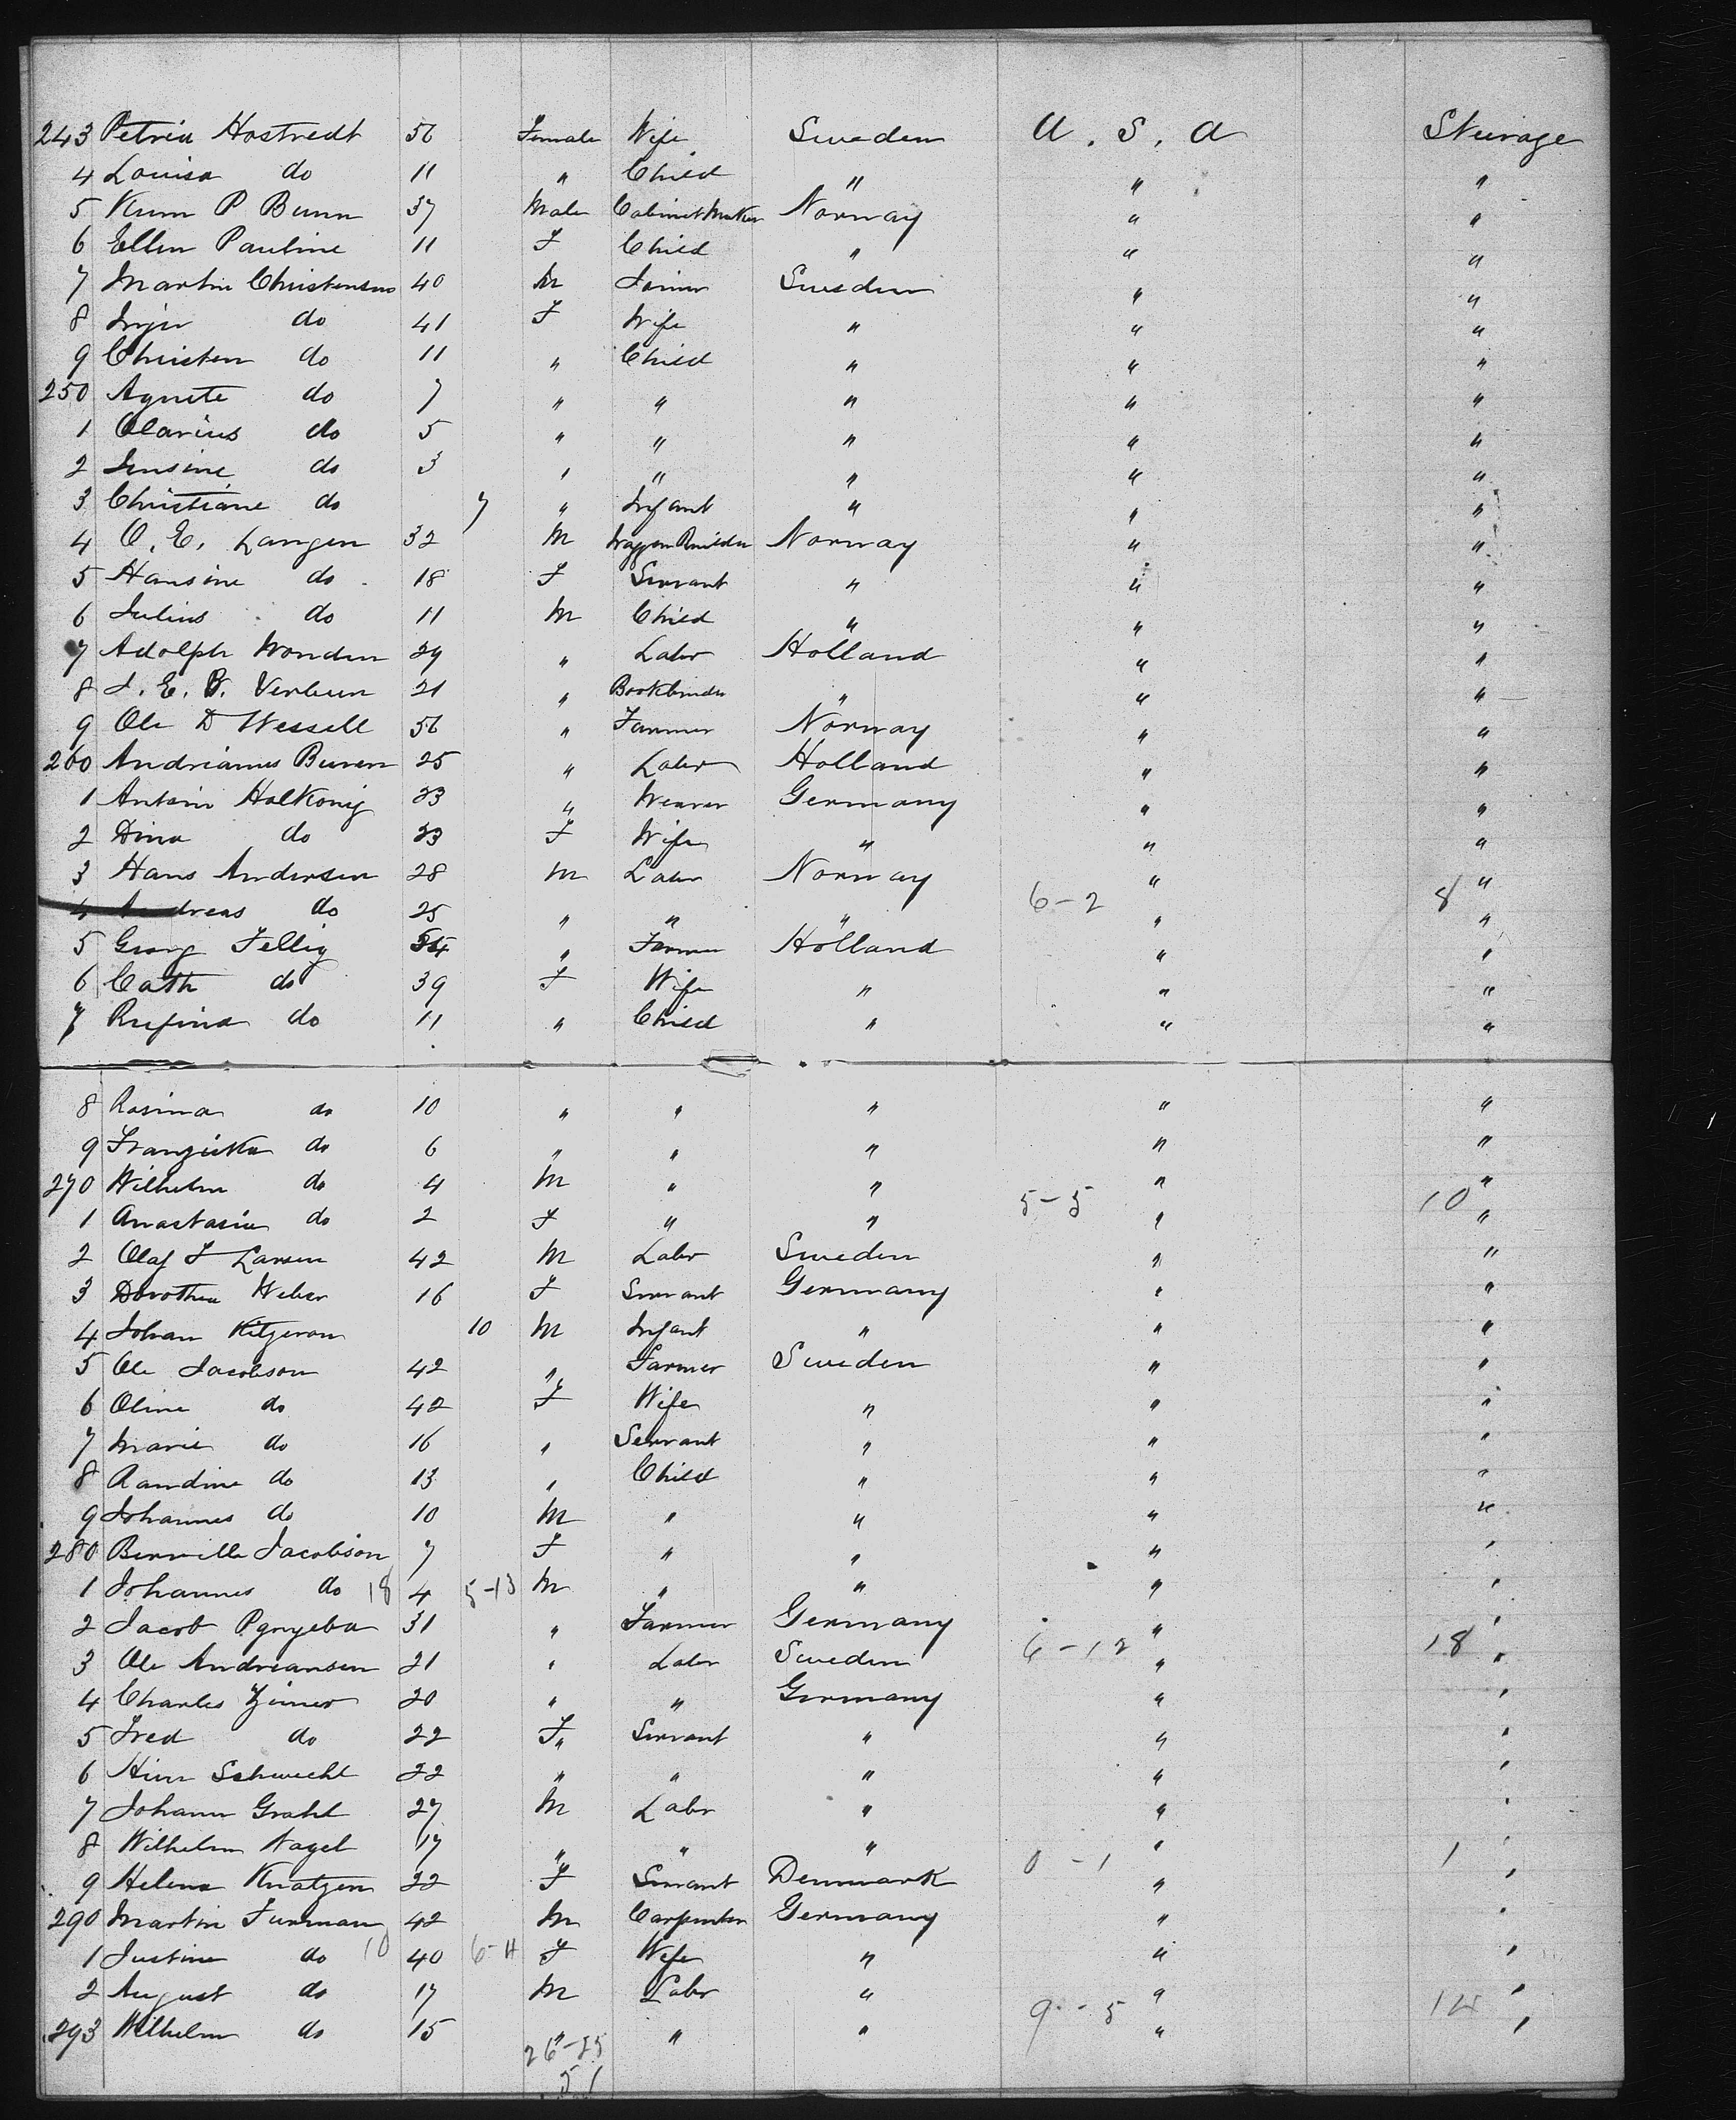 243 Petrea Hostvedt 56 Female Wife Sweden U. S. A Steerage
4 Louisa do 11 " Child " " "
5 Knm P Bunn 37 Male Cabinet Maker Norway " "
6 Ellen Pauline 11 F Child " " "
7 Martin Christensen 40 M Joiner Sweden " "
8 Inger do 41 F Wife " " "
9 Christen do 11 " Child " " "
250 Agnete do 7 " " " " "
1 Olavius do 5 " " " " "
2 Jensine do 3 " " " " "
3 Christiane do 7 " Infant " " "
4 O. E. Langen 32 M Waggon Builder Norway " "
5 Hansine do 18 F Servant " " "
6 Julius do 11 M Child " " "
7 Adolph Wonden 29 " Labr Holland " "
8 J. E. B. Verbeen 21 " Bookbinder " " "
9 Ole D Wessell 56 " Farmer Norway " "
260 Andrianus Buren 25 " Labr Holland " "
1 Antoin Holkonig 23 " Weaver Germany " "
2 Dina do 23 F Wife " " "
3 Hans Andersen 28 M Labr Norway " "
4 Andreas do 25 " " " 6-2 " 8 "
5 Georg Fellig 54 " Farmer Holland " "
6 Cath do 39 F Wife " " "
7 Rufina do 11 " Child " " "
8 Rosina do 10 " " " " "
9 Franziska do 6 " " " " "
270 Wilhelm do 4 M " " " "
1 Anastasia do 2 F " " 5-5 " 10 "
2 Olaf F Larsen 42 M Labr Sweden " "
3 Dorothea Weber 16 F Servant Germany " "
4 Johan Kitzeron 10 M Infant " " "
5 Ole Jacobson 42 " Farmer Sweden " "
6 Oline do 42 F Wife " " "
7 Marie do 16 " Servant " " "
8 Randine do 13 " Child " " "
9 Johannes do 10 M " " " "
280 Bernille Jacobson 7 F " " " "
1 Johannes do 18 4 5-13 M " " " "
2 Jacob Pgryeba 31 " Farmer Germany " "
3 Ole Andreansen 21 " Labr Sweden 6-12 " 18 "
4 Charles Zimer 20 " " Germany " "
5 Fred do 22 F " Servant " " "
6 Hinr Schwecht 22 " " " " "
7 Johann Grahl 27 M Labr " " "
8 Wilhelm Nagel 17 " " " " "
9 Helena Knatzen 22 F Servant Denmark 0-1 " 1 "
290 Martin Furman 42 M Carpenter Germany " "
1 Justine do 10 40 6-4 F Wife " " "
2 August do 17 M Labr " " "
293 Wilhelm do 15 " " " 9-5 " 14 "
26-25
51